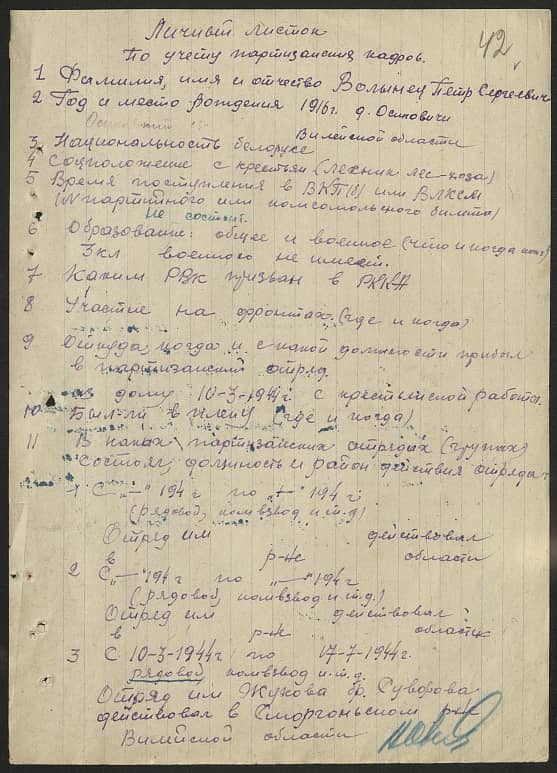 Личный листок
42
По учету партизанских кадров.
1 Фамилия, имя и отчество Волынец Петр Сергеевич
2 Год и место рождения 1916 г. д. Осиповичи
Вилейской области
3 Национальность белорусс
4 Соцположение с крестьян (
5 Время поступления в ВКП(б) или ВЛКСМ
(№ партийного или комсомольского билета)
Не состоит.
6 Образование: общее и военное (что и когда
3 кл военного не имеет.
7 Каким РВК призван в РККА
8 Участие на фронтах (где и когда)
9 Откуда, когда и с какой должности прибыл
в партизанский отряд.
из дому 10-3-1944 г. с крестьянской работы.
10 Был-ли в плену (где и когда)
11 В каких партизанских отрядах (группах)
состоял, должность и район действия отряда
1 С „—" 194 г по „—" 194 г.
(рядовой, комвзвод и т.д)
Отряд им действовал
в р-не области
2 С „—" 194 г по „—" 194 г
(рядовой, комвзвод и т.д.)
Отряд им действовал
в р-не области
3 С 10-3-1944 г по 17-7-1944 г.
рядовой, комвзвод и т.д.
Отряд им Жукова бр. Суворова
действовал в Сморгоньском р-не
Вилейской области